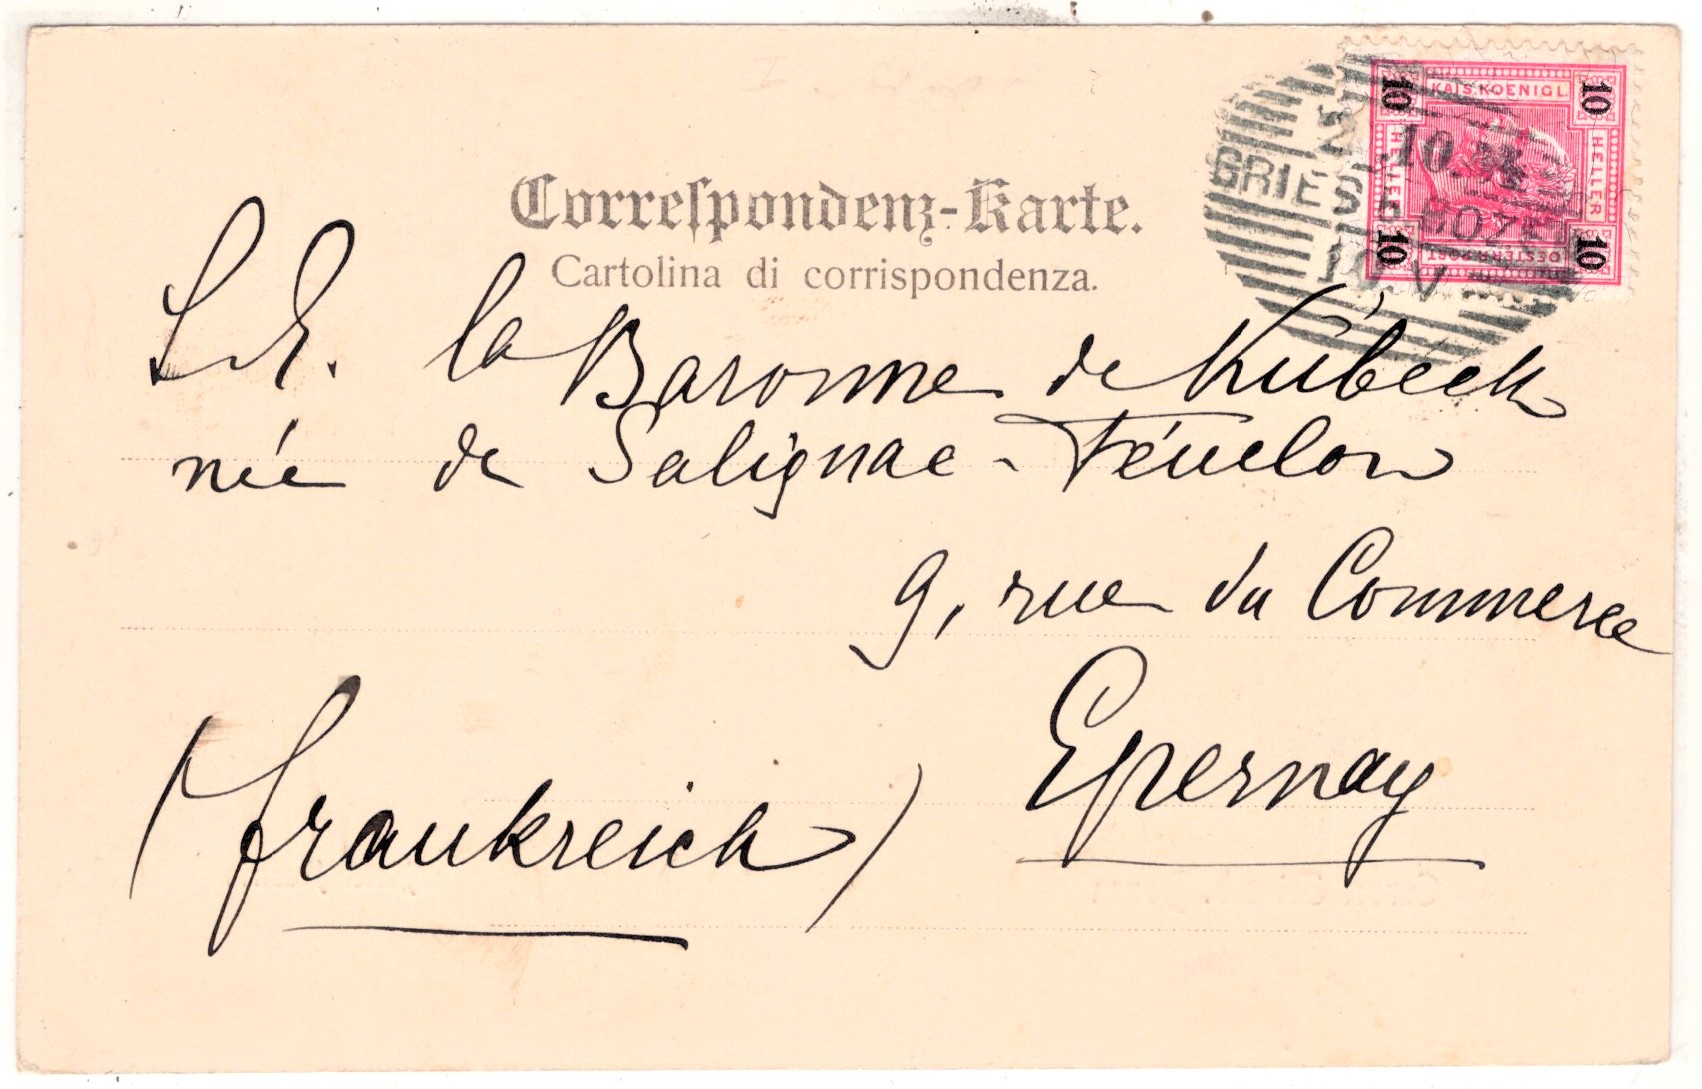 Correspondenz-Karte.
Cartolina di corrispondenza.
KAIS. KOENIGL.
10 10
HELLER HELLER
10 10
OESTERR. POST
GRIES B. BOZEN
S. E. la Baronne de Kübeck
née de Salignac-Fénelon
9, rue du Commerce
Epernay
(Frankreich)